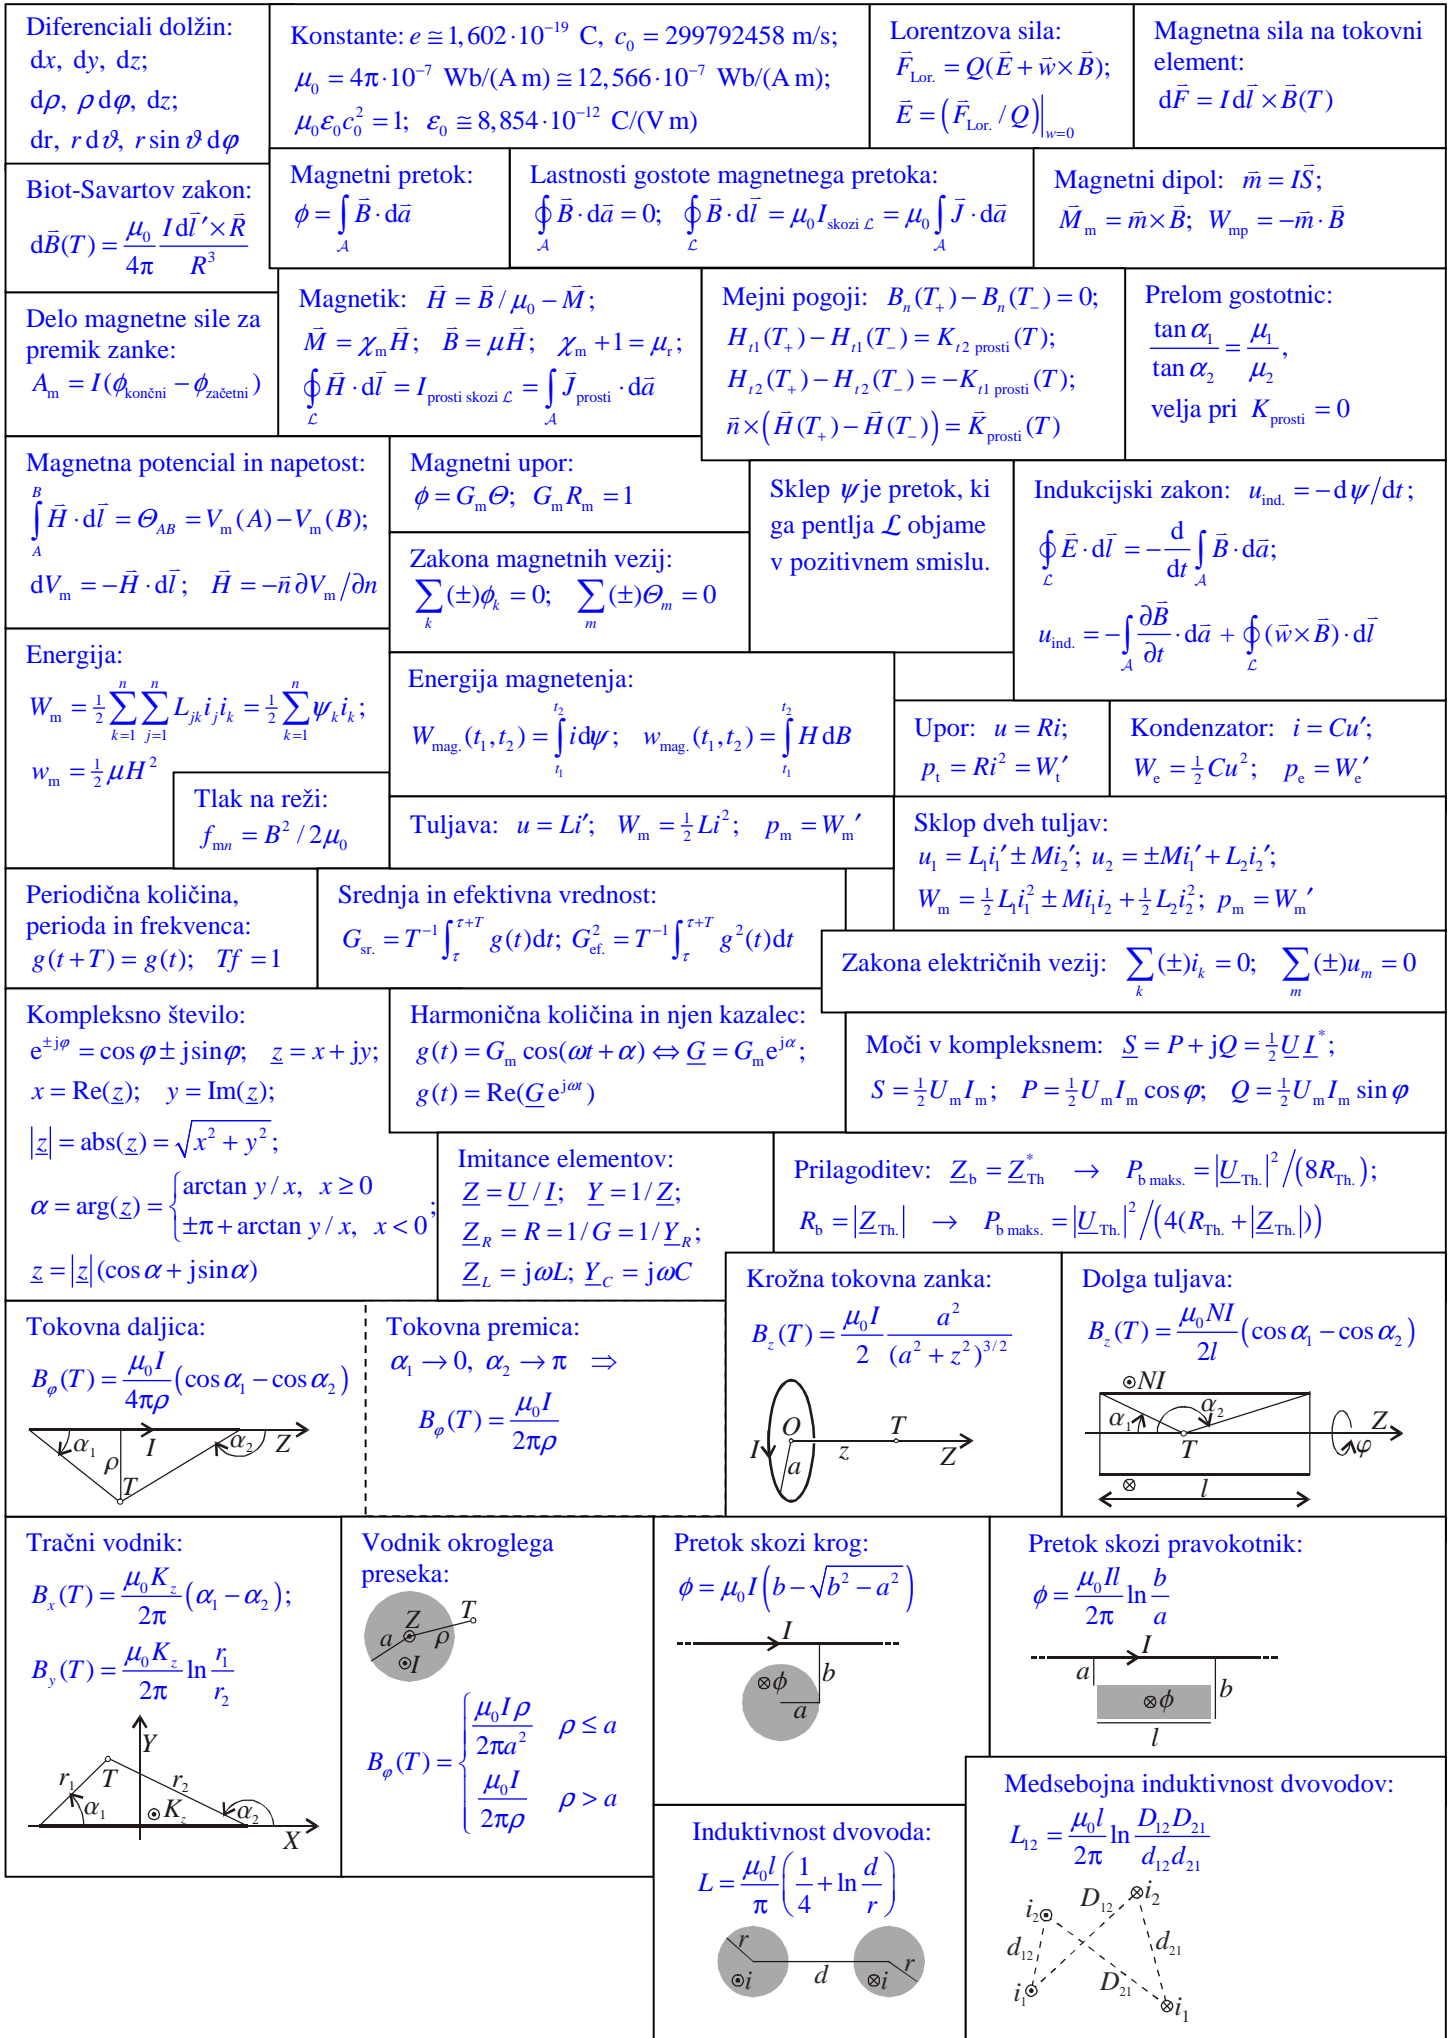 Diferenciali dolžin:
dx, dy, dz;
dρ, ρ dφ, dz;
dr, r dϑ, r sin ϑ dφ
Konstante: e ≅ 1,602·10⁻¹⁹ C, c₀ = 299792458 m/s;
μ₀ = 4π·10⁻⁷ Wb/(A m) ≅ 12,566·10⁻⁷ Wb/(A m);
μ₀ε₀c₀² = 1; ε₀ ≅ 8,854·10⁻¹² C/(V m)
Lorentzova sila:
F⃗_Lor. = Q(E⃗ + w⃗ × B⃗);
E⃗ = (F⃗_Lor. / Q)|_{w=0}
Magnetna sila na tokovni
element:
dF⃗ = I dl⃗ × B⃗(T)
Biot-Savartov zakon:
dB⃗(T) = μ₀/4π · I dl⃗′ × R⃗ / R³
Magnetni pretok:
ϕ = ∫_A B⃗ · da⃗
Lastnosti gostote magnetnega pretoka:
∮_A B⃗ · da⃗ = 0; ∮_L B⃗ · dl⃗ = μ₀ I_{skozi L} = μ₀ ∫_A J⃗ · da⃗
Magnetni dipol: m⃗ = IS⃗;
M⃗_m = m⃗ × B⃗; W_mp = −m⃗ · B⃗
Delo magnetne sile za
premik zanke:
A_m = I(ϕ_končni − ϕ_začetni)
Magnetik: H⃗ = B⃗ / μ₀ − M⃗;
M⃗ = χ_m H⃗; B⃗ = μH⃗; χ_m + 1 = μ_r;
∮_L H⃗ · dl⃗ = I_{prosti skozi L} = ∫_A J⃗_prosti · da⃗
Mejni pogoji: B_n(T₊) − B_n(T₋) = 0;
H_t1(T₊) − H_t1(T₋) = K_{t2 prosti}(T);
H_t2(T₊) − H_t2(T₋) = −K_{t1 prosti}(T);
n⃗ × (H⃗(T₊) − H⃗(T₋)) = K⃗_prosti(T)
Prelom gostotnic:
tan α₁ / tan α₂ = μ₁ / μ₂,
velja pri K_prosti = 0
Magnetna potencial in napetost:
∫_A^B H⃗ · dl⃗ = Θ_AB = V_m(A) − V_m(B);
dV_m = −H⃗ · dl⃗; H⃗ = −n⃗ ∂V_m/∂n
Magnetni upor:
ϕ = G_m Θ; G_m R_m = 1
Zakona magnetnih vezij:
∑_k (±)ϕ_k = 0; ∑_m (±)Θ_m = 0
Sklep ψ je pretok, ki
ga pentlja L objame
v pozitivnem smislu.
Indukcijski zakon: u_ind. = −dψ/dt;
∮_L E⃗ · dl⃗ = −d/dt ∫_A B⃗ · da⃗;
u_ind. = −∫_A ∂B⃗/∂t · da⃗ + ∮_L (w⃗ × B⃗) · dl⃗
Energija:
W_m = ½ ∑_{k=1}^n ∑_{j=1}^n L_jk i_j i_k = ½ ∑_{k=1}^n ψ_k i_k;
w_m = ½ μH²
Tlak na reži:
f_mn = B² / 2μ₀
Energija magnetenja:
W_mag.(t₁,t₂) = ∫_{t₁}^{t₂} i dψ; w_mag.(t₁,t₂) = ∫_{t₁}^{t₂} H dB
Upor: u = Ri;
p_t = Ri² = W_t′
Kondenzator: i = Cu′;
W_e = ½ Cu²; p_e = W_e′
Tuljava: u = Li′; W_m = ½ Li²; p_m = W_m′
Sklop dveh tuljav:
u₁ = L₁i₁′ ± Mi₂′; u₂ = ±Mi₁′ + L₂i₂′;
W_m = ½ L₁i₁² ± Mi₁i₂ + ½ L₂i₂²; p_m = W_m′
Periodična količina,
perioda in frekvenca:
g(t + T) = g(t); Tf = 1
Srednja in efektivna vrednost:
G_sr. = T⁻¹ ∫_τ^{τ+T} g(t)dt; G_ef.² = T⁻¹ ∫_τ^{τ+T} g²(t)dt
Zakona električnih vezij: ∑_k (±)i_k = 0; ∑_m (±)u_m = 0
Kompleksno število:
e^{±jφ} = cos φ ± j sin φ; z = x + jy;
x = Re(z); y = Im(z);
|z| = abs(z) = √(x² + y²);
α = arg(z) = { arctan y / x, x ≥ 0
±π + arctan y / x, x < 0 ;
z = |z|(cos α + j sin α)
Harmonična količina in njen kazalec:
g(t) = G_m cos(ωt + α) ⇔ G = G_m e^{jα};
g(t) = Re(G e^{jωt})
Moči v kompleksnem: S = P + jQ = ½ U I*;
S = ½ U_m I_m; P = ½ U_m I_m cos φ; Q = ½ U_m I_m sin φ
Imitance elementov:
Z = U / I; Y = 1/ Z;
Z_R = R = 1/ G = 1/ Y_R;
Z_L = jωL; Y_C = jωC
Prilagoditev: Z_b = Z*_Th → P_{b maks.} = |U_Th.|² /(8R_Th.);
R_b = |Z_Th.| → P_{b maks.} = |U_Th.|² /(4(R_Th. + |Z_Th.|))
Tokovna daljica:
B_φ(T) = μ₀I/4πρ (cos α₁ − cos α₂)
α₁ I α₂ Z
ρ
T
Tokovna premica:
α₁ → 0, α₂ → π ⇒
B_φ(T) = μ₀I/2πρ
Krožna tokovna zanka:
B_z(T) = μ₀I/2 · a²/(a² + z²)^{3/2}
O T
I a z Z
Dolga tuljava:
B_z(T) = μ₀NI/2l (cos α₁ − cos α₂)
⊙NI
α₁ α₂ Z
T φ
⊗ l
Tračni vodnik:
B_x(T) = μ₀K_z/2π (α₁ − α₂);
B_y(T) = μ₀K_z/2π ln r₁/r₂
Y
r₁ T r₂
α₁ ⊙K_z α₂
X
Vodnik okroglega
preseka:
Z T
a ρ
⊙I
B_φ(T) = { μ₀Iρ/2πa² ρ ≤ a
μ₀I/2πρ ρ > a
Pretok skozi krog:
ϕ = μ₀I(b − √(b² − a²))
I
⊗ϕ b
a
Pretok skozi pravokotnik:
ϕ = μ₀Il/2π ln b/a
I
a ⊗ϕ b
l
Induktivnost dvovoda:
L = μ₀l/π (1/4 + ln d/r)
r r
⊙i d ⊗i
Medsebojna induktivnost dvovodov:
L₁₂ = μ₀l/2π ln D₁₂D₂₁/d₁₂d₂₁
i₂⊙ D₁₂ ⊗i₂
d₁₂ d₂₁
i₁⊙ D₂₁ ⊗i₁